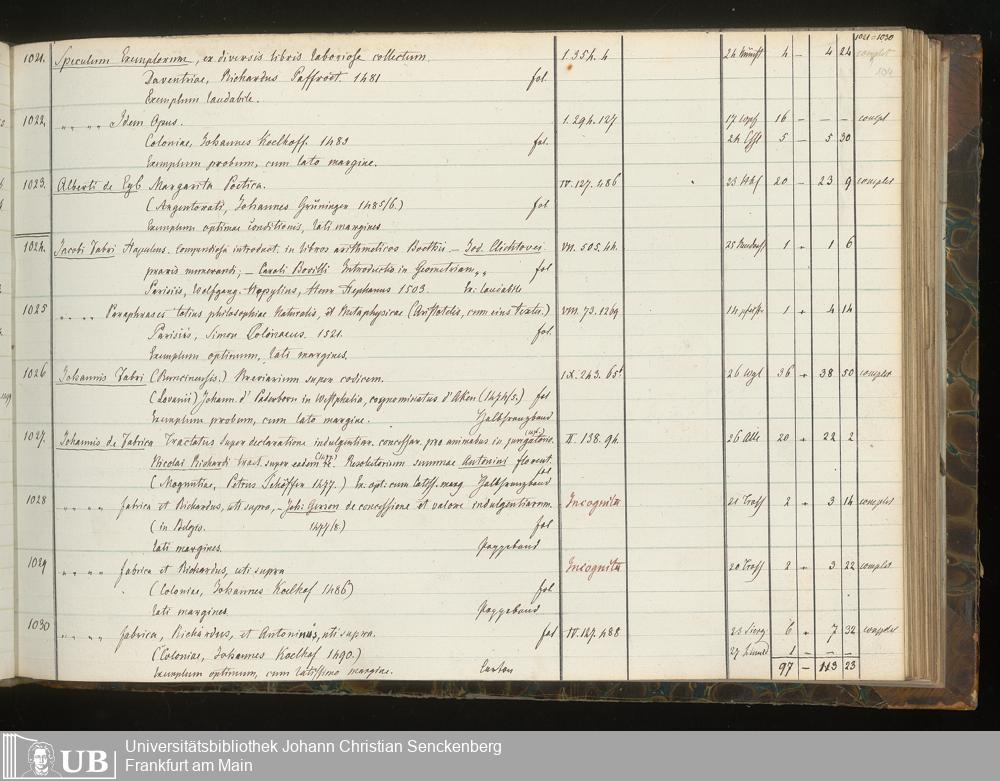 1021-1030
1021. Speculum Exemplorum, ex diversis libris laboriose collectum 1.354.4 4 — 4 24 complet
Daventriae, Richardus Paffroet. 1481 fol. 104
Exemplum laudabile.
1022. „ „ „ „ Idem Opus. 1.294.127 16 — — — compl
Coloniae, Johannes Koelhoff. 1483 fol. 5 — 5 30
Exemplum probum, cum lato margine.
1023. Alberti de Eyb Margarita Poetica. IV.127.486 20 — 23 9 complet
(Argentorati, Johannes Grüninger 1485/6.) fol
Exemplum optimae conditionis, lati margines
1024. Jacobi Fabri Stapulens. compendiosa introduct. in libros arithmeticos Boethii — Jod. Clichtovei VII. 505.44. 1 „ 1 6
praxis numerandi; — Caroli Bovilli Introductio in Geometriam „ „ fol
Parisiis, Wolfgang. Hopylius, Henr Stephanus 1503. Ex. laudabile
1025 „ „ „ „ Paraphrases totius philosophiae Naturalis, et Metaphysicae (Aristotelis, cum eius textu.) VIII. 73.1269 1 „ 4 14
Parisiis, Simon Colinaeus. 1521. fol.
Exemplum optimum, lati margines.
1026 Johannis Fabri (Runcinensis.) Breviarium super codicem. IX. 243. 65 36 „ 38 50 complet
(Lovanii) Johann. d' Paderborn in Westphalia, cognominatus d'Aken (1474/5.) fol
Exemplum probum, cum lato margine. Halbfranzband
1027. Johannis de Fabrica Tractatus super declaratione indulgentiar. concessar. pro animabus in purgatorio. II. 138. 94. 26 20 „ 22 2
Nicolai Richardi tract. super eadem re. Resolutorium summae Antonini florent.
(Moguntiae, Petrus Schöffer 1477.) Ex. opt. cum latiss. marg Halbfranzband fol
1028 „ „ „ „ Fabrica et Richardus, uti supra, — Joh: Gerson de concessione et valore indulgentiarum. Incognita 2 „ 3 14 complet
(in Belgio. 1477/8.) fol
lati margines. Pappeband
1029 „ „ „ „ Fabrica et Richardus, uti supra Incognita 2 „ 3 22 complet
(Coloniae, Johannes Koelhof 1486) fol
lati margines. Pappeband
1030 „ „ „ „ Fabrica, Richardus, et Antoninus, uti supra. fol IV. 127. 488 6 „ 7 32 complet
(Coloniae, Johannes Koelhof 1490.) 27 1 — — —
Exemplum optimum, cum latissimo margine. Carton 97 — 113 23
UB
Universitätsbibliothek Johann Christian Senckenberg
Frankfurt am Main